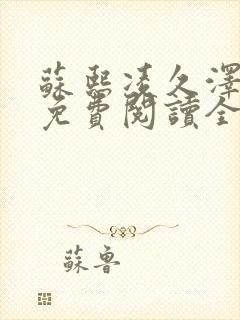 蘇熙凌久澤
免費閱讀全
蘇魯